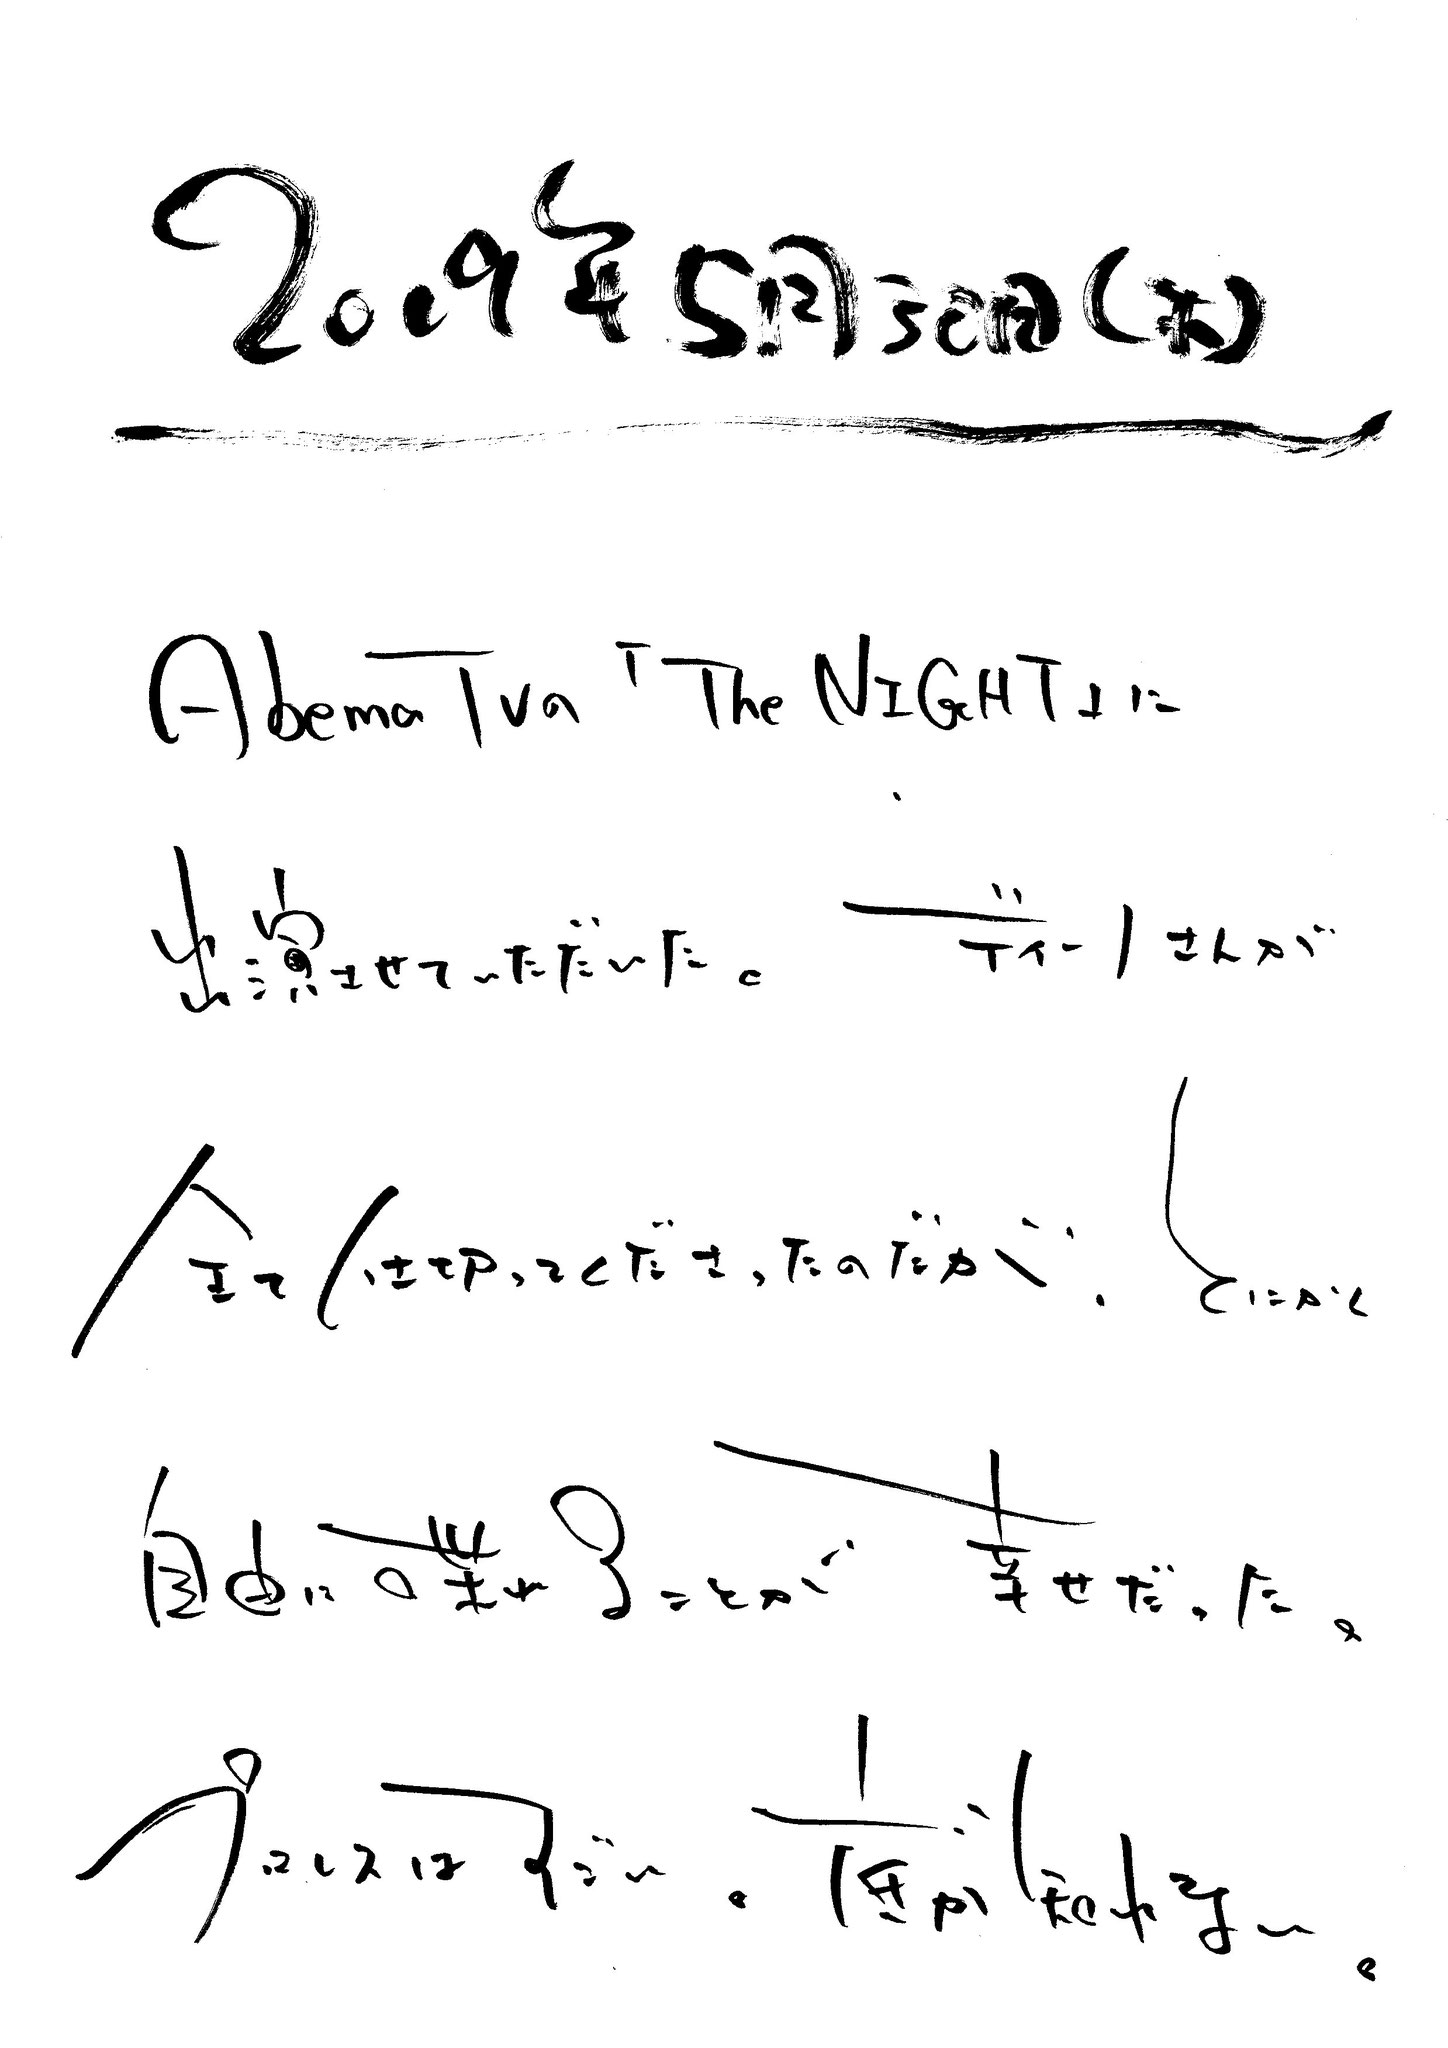 2019年5月30日(木)
AbemaTVの「The NIGHT」に
出演させていただいた。ディーノさんが
全て仕切ってくださったのだが、とにかく
自由に喋れることが幸せだった。
プロレスはすごい。底が知れない。